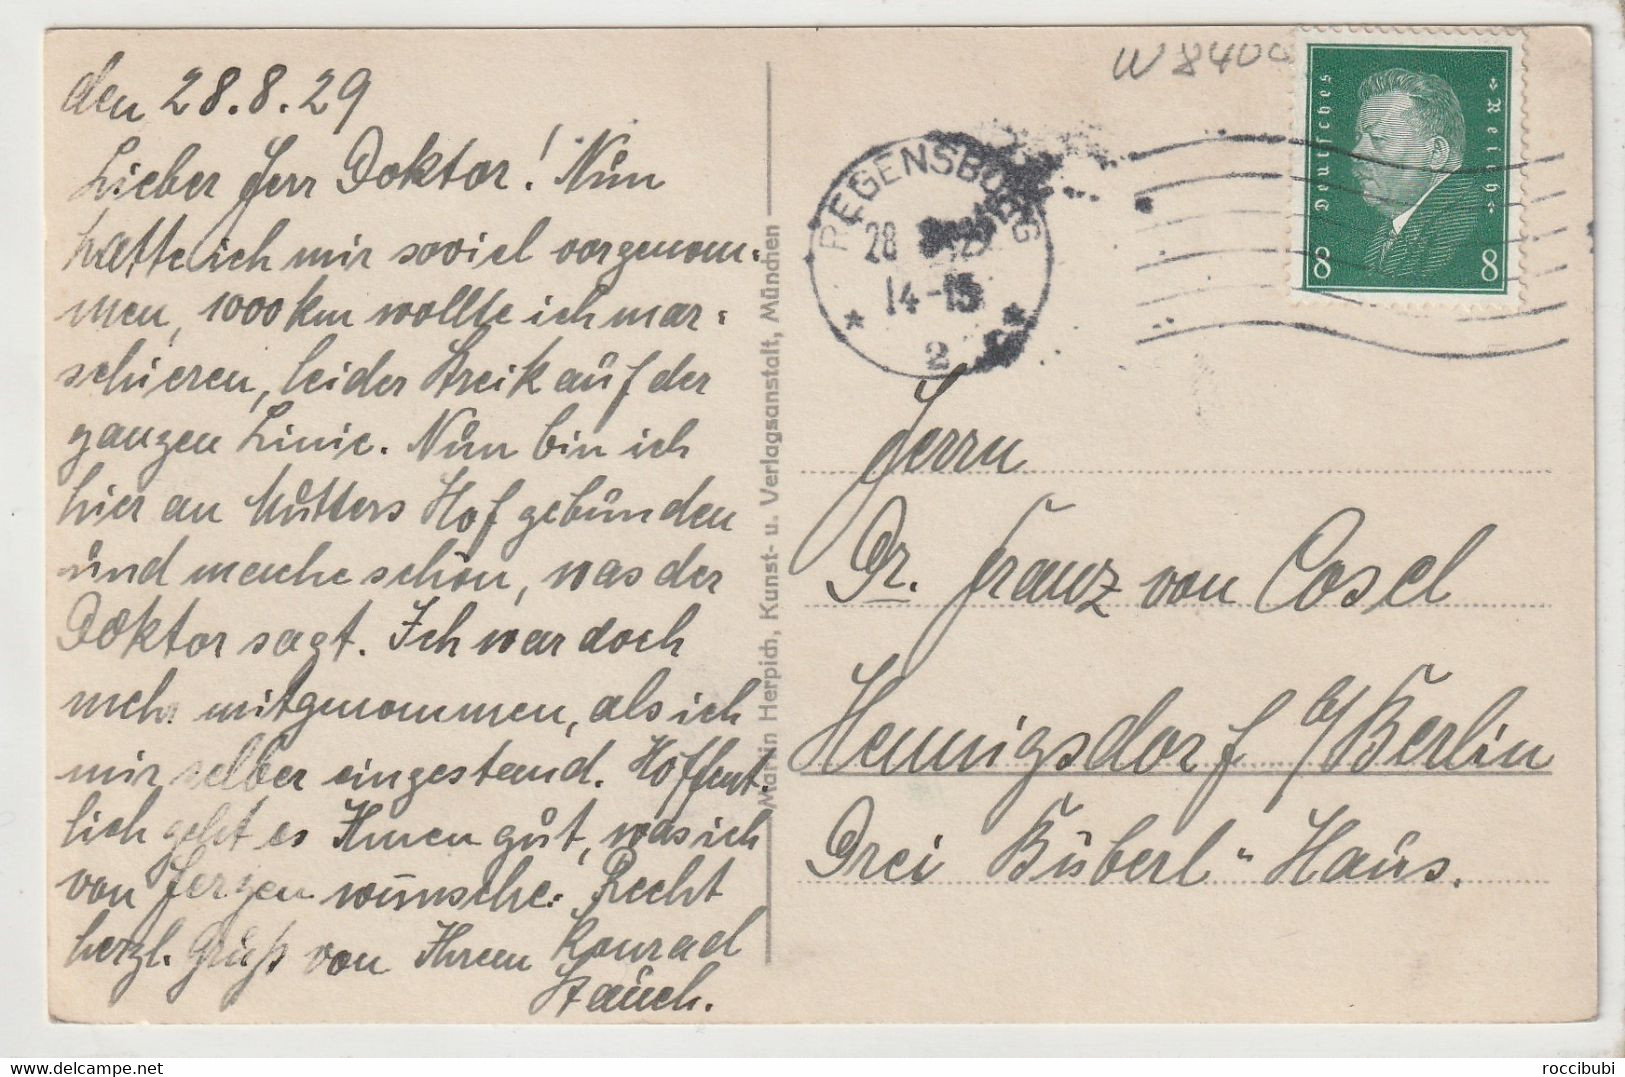 den 28.8.29
Lieber Herr Doktor! Nun
hatte ich mir soviel vorgenom-
men, 1000 km wollte ich mar-
schieren, leider Streik auf der
ganzen Linie. Nun bin ich
hier an Mutters Hof gebunden
und mache schön, was der
Doktor sagt. Ich war doch
mehr mitgenommen, als ich
mir selber eingestand. Hoffent-
lich geht es Ihnen gut, was ich
von Herzen wünsche. Recht
herzl. Gruß von Ihrem Konrad
Stauch.
Martin Herpich, Kunst- u. Verlagsanstalt, München
W 8400
REGENSBURG
28 29
14-15
* 2 *
Deutsches Reich
8 8
Herrn
Dr. Franz von Cosel
Hennigsdorf b/Berlin
Drei Büberl" Haus.
delcampe.net
roccibubi